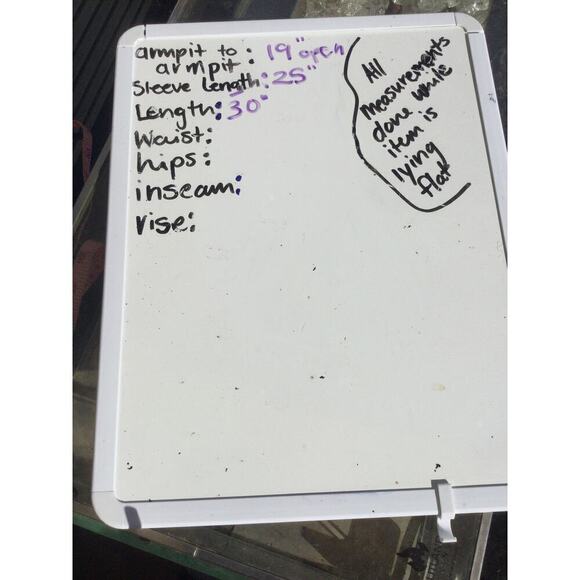 armpit to : 19" open
armpit :
Sleeve Length: 25"
Length: 30"
Waist:
hips:
inseam:
rise:
All
measurements
done while
item is
lying
flat